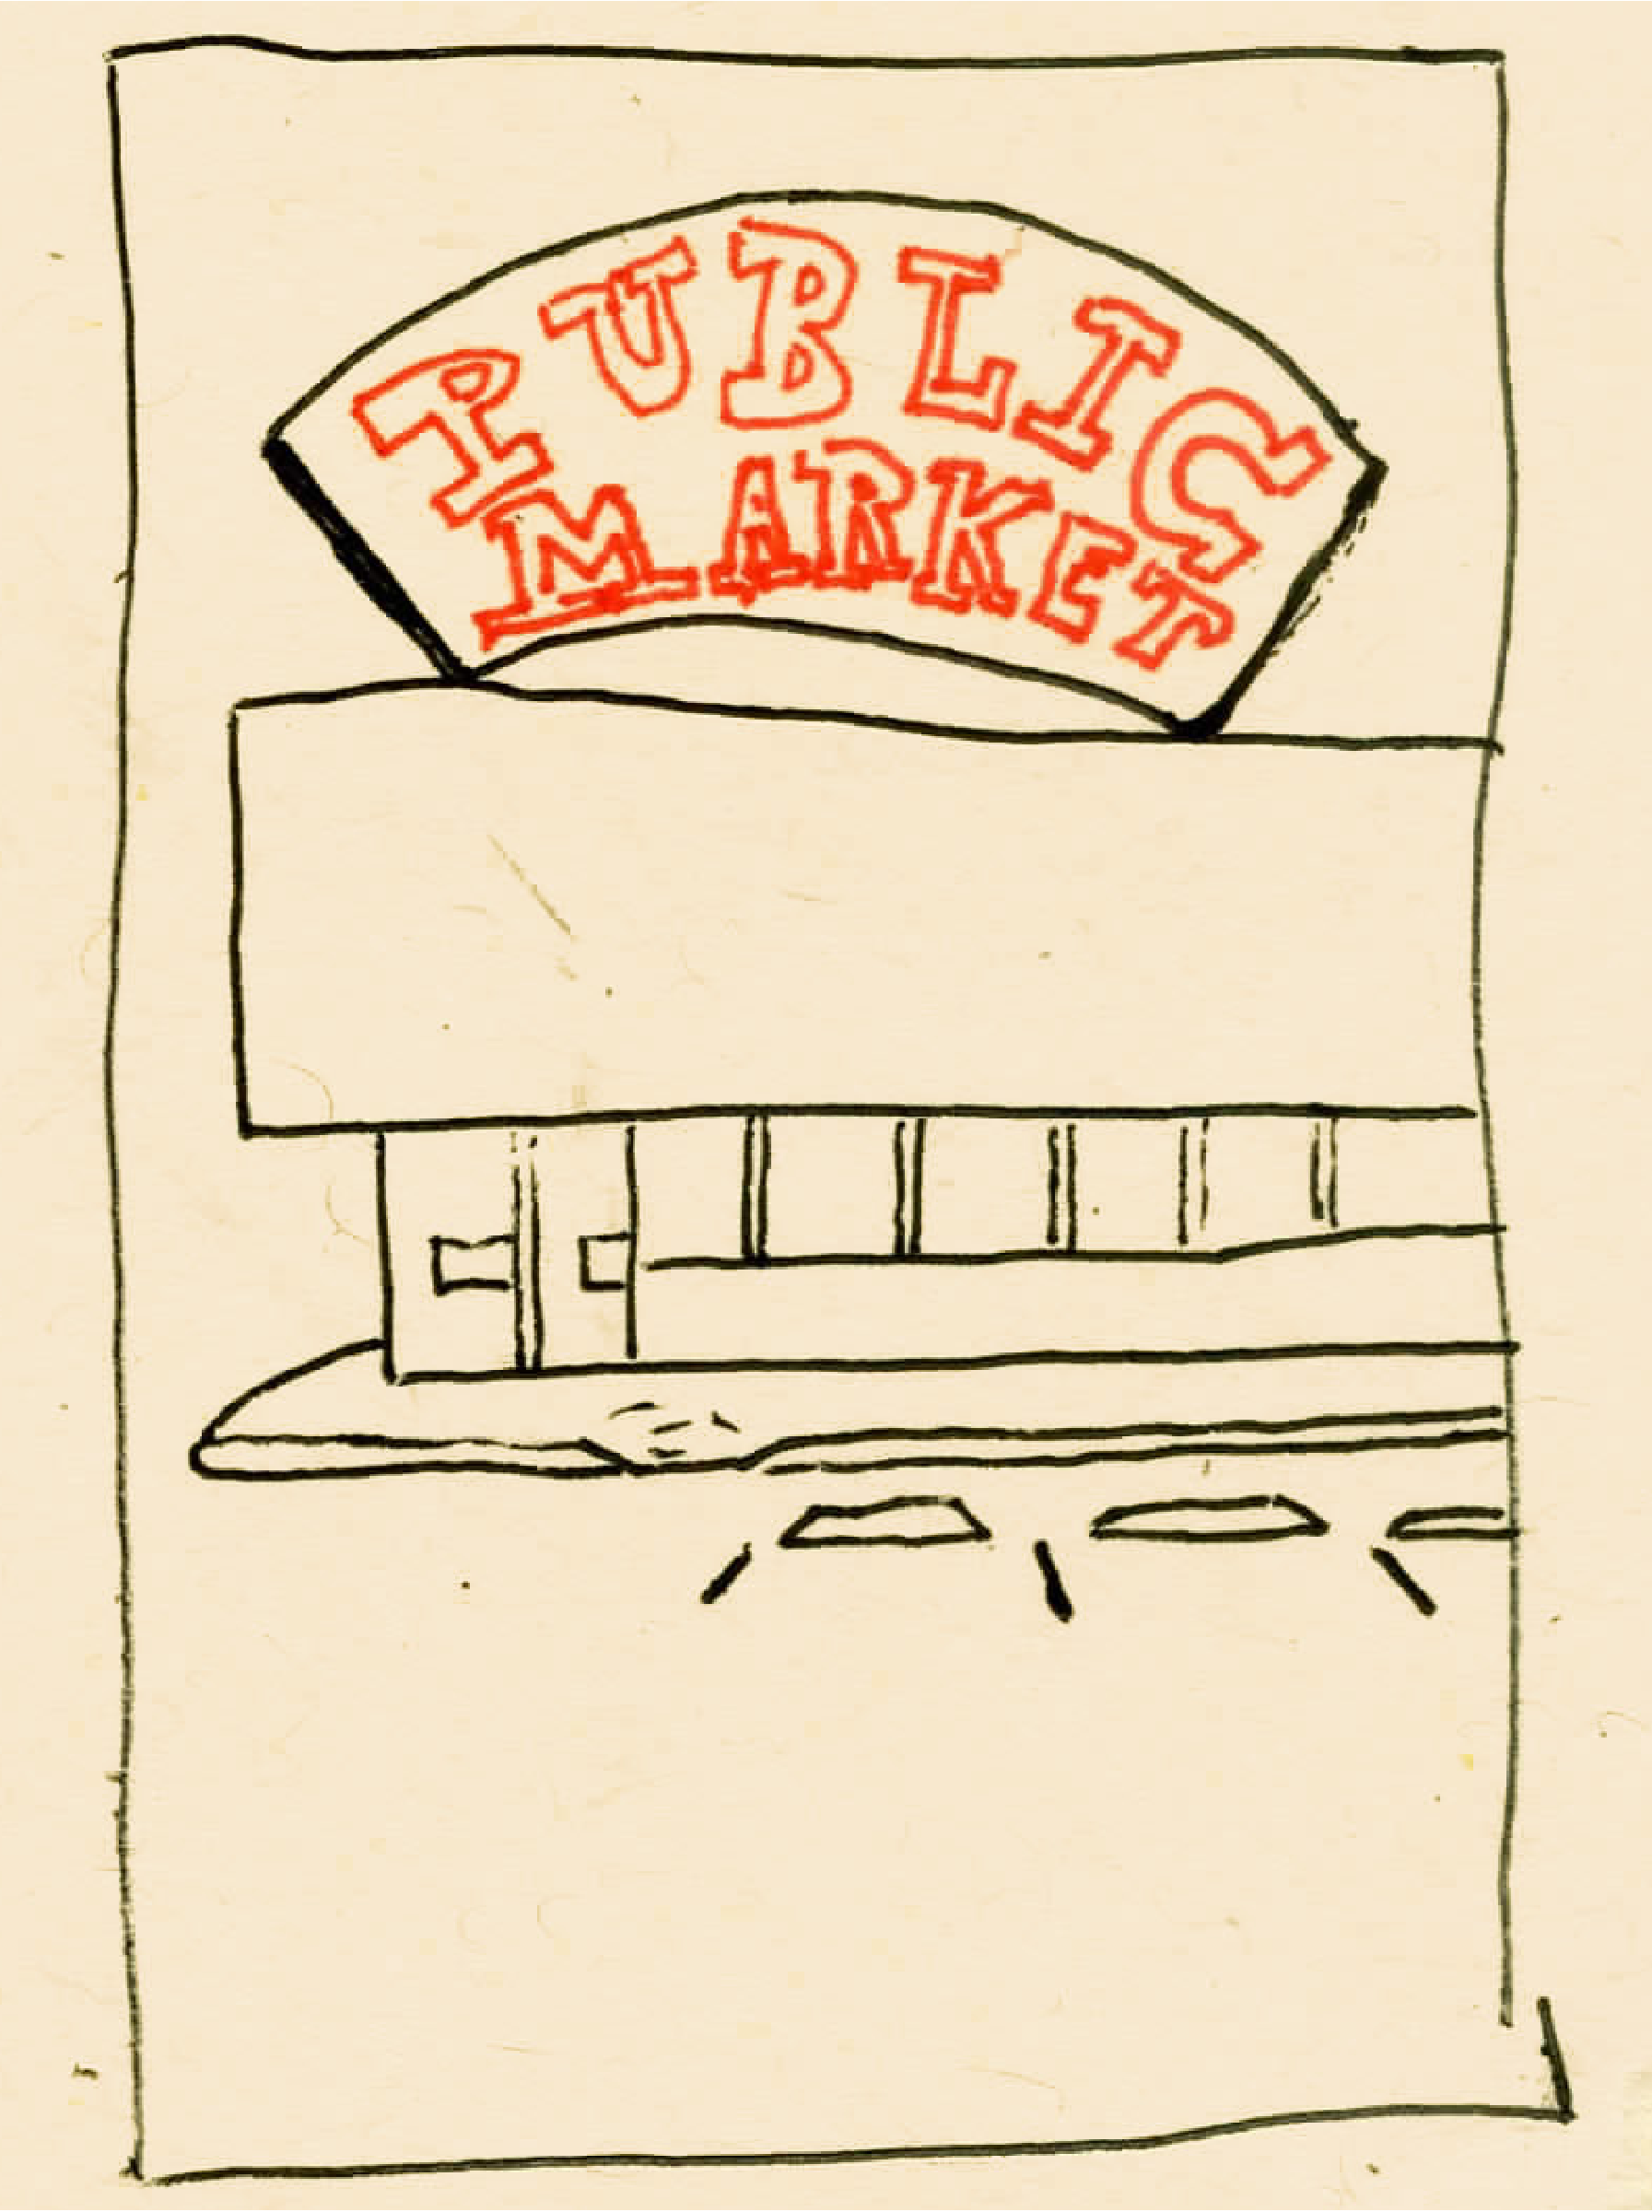 PUBLIC
MARKET